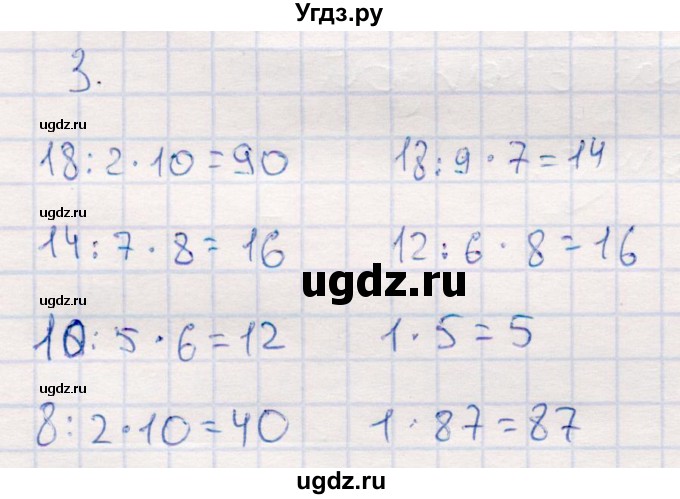 Угдз.ру
3.
ugdz.ru
18:2·10=90 18:9·7=14
ugdz.ru
14:7·8=16 12:6·8=16
ugdz.ru
ugdz.ru
10:5·6=12 1·5=5
ugdz.ru
8:2·10=40 1·87=87
ugdz.ru